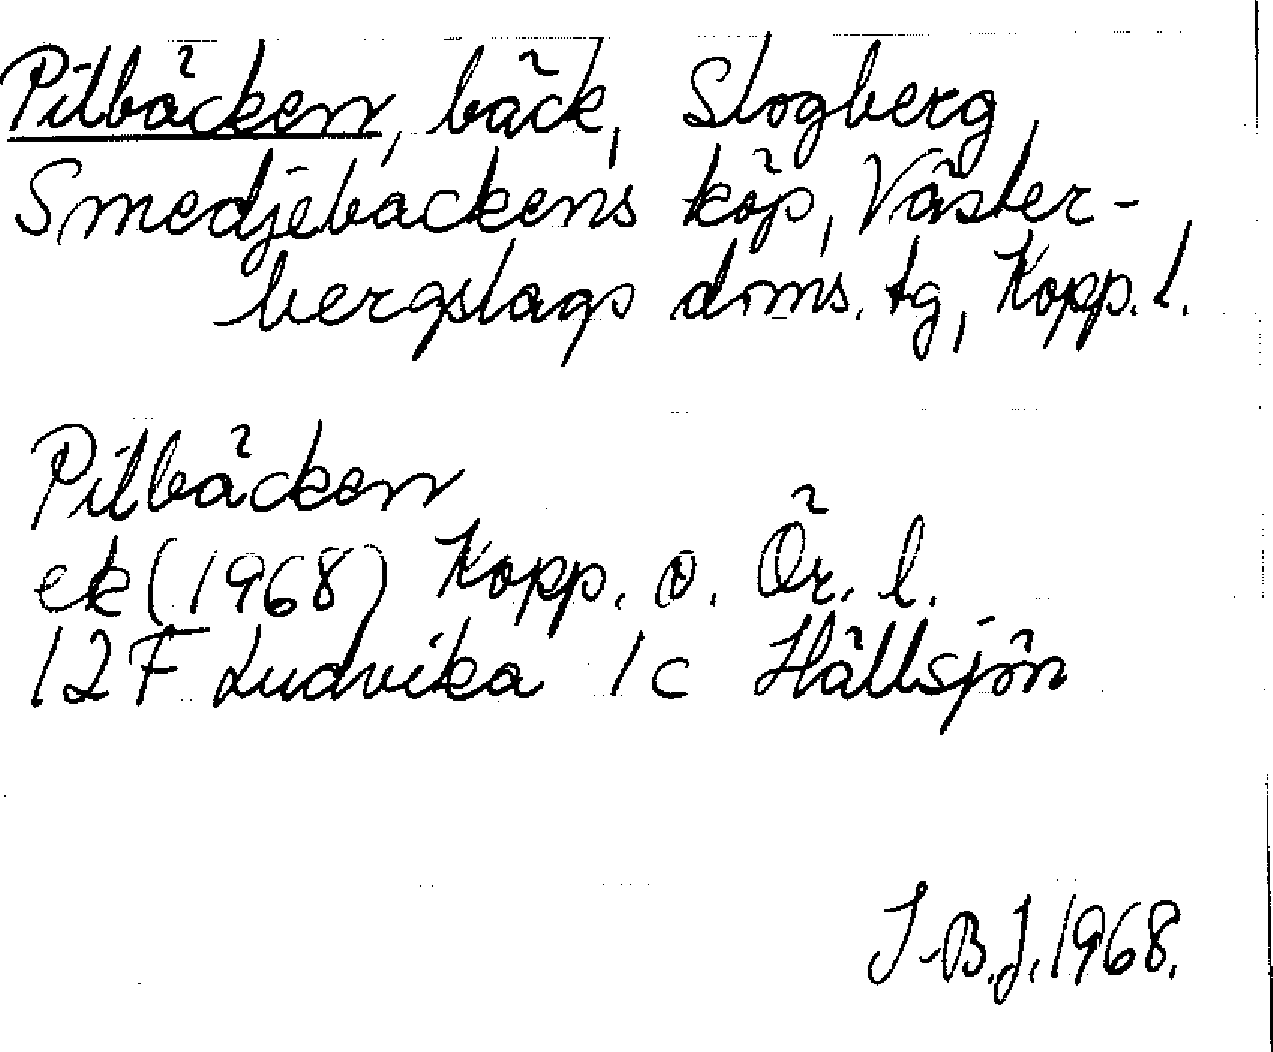 Pilbäcken, bäck, Slogberg,
Smedjebackens köp, Väster-
bergslags doms. tg, Kopp. l.
Pilbäcken
ek (1968) Kopp. o. Ör. l.
12F Ludvika 1c Hällsjön
I-B.J. 1968.